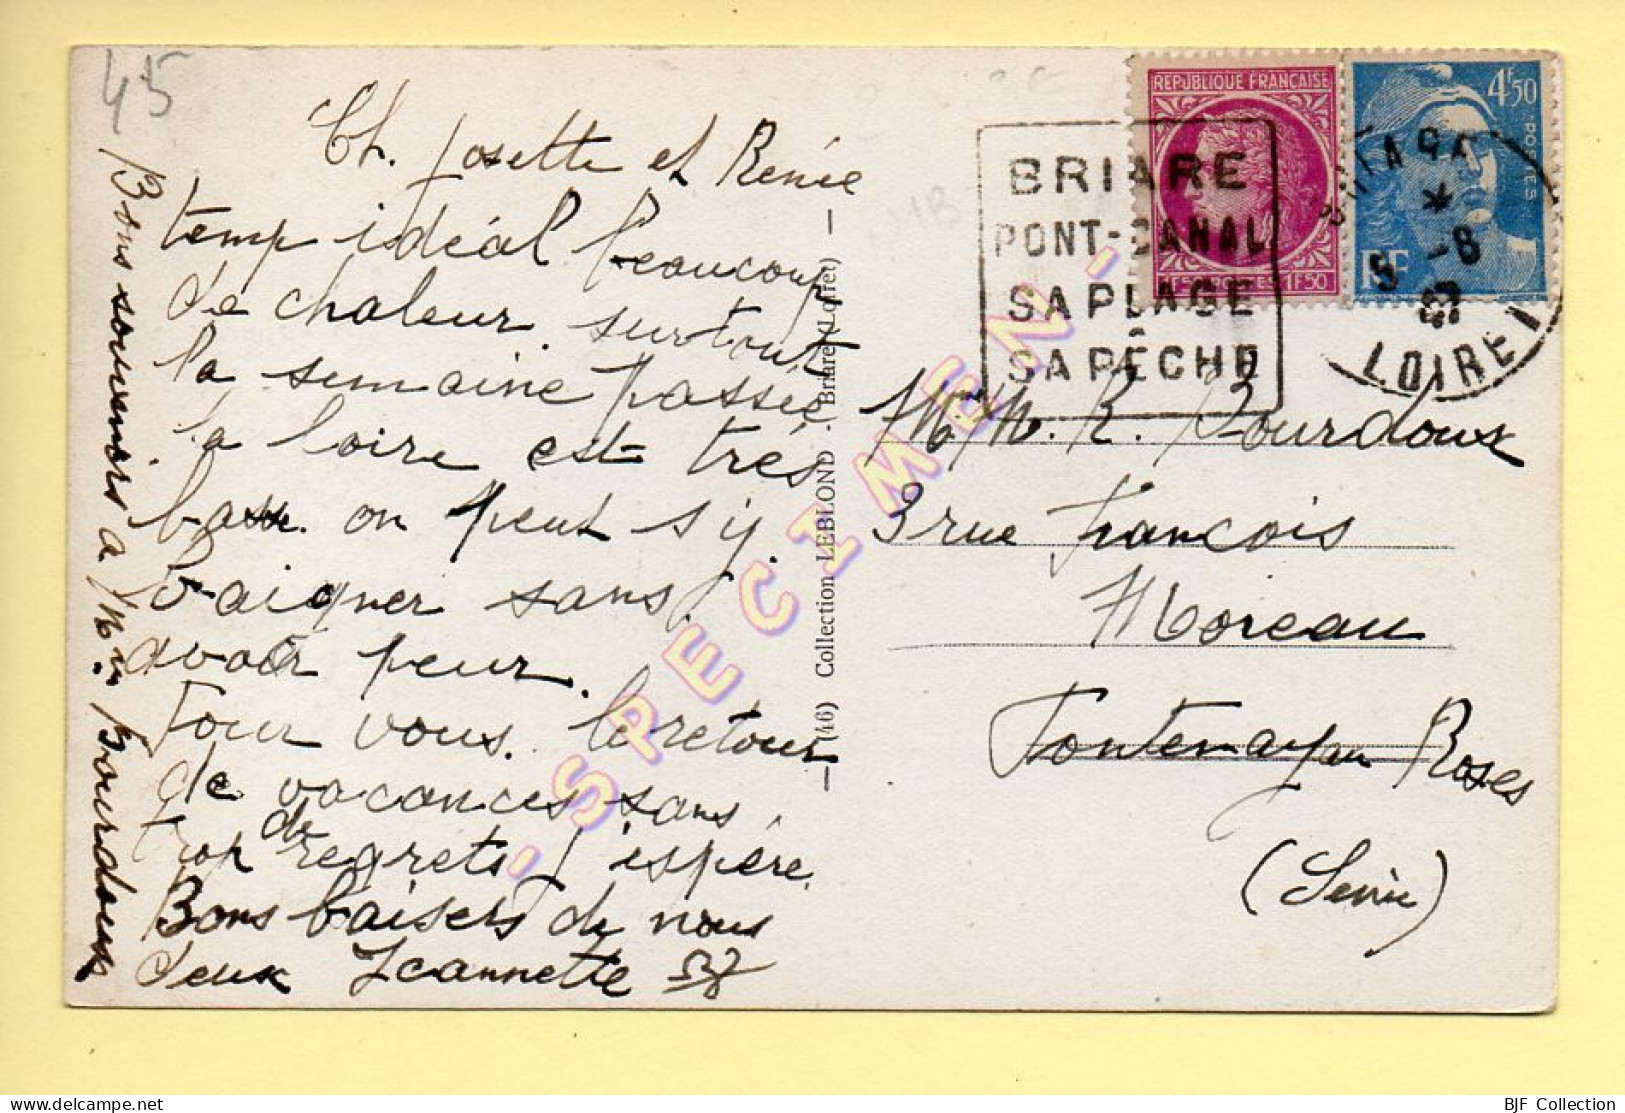 45
Ch. Josette et Renée
temp idéal beaucoup
de chaleur surtout
la semaine passée.
la loire est très
basse. on peut s'y.
baigner sans
avoir peur.
Pour vous. le retour
de vacances sans
trop de regrets j'espère.
Bons baisers de nous
deux Jeannette
Bons souvenirs a Mme Bourdoux
(46) Collection LEBLOND. Briare (Loiret)
BRIARE
PONT-CANAL
SA PLAGE
SA PÊCHE
REPUBLIQUE FRANÇAISE
1F50 POSTES 1F50
4F50
POSTES
RF
BRIARE
* 
5 -8
LOIRET
M. M. R. Bourdoux
3 rue François
Moreau
Fontenay au Roses
(Seine)
- SPECIMEN -
delcampe.net
BJF Collection